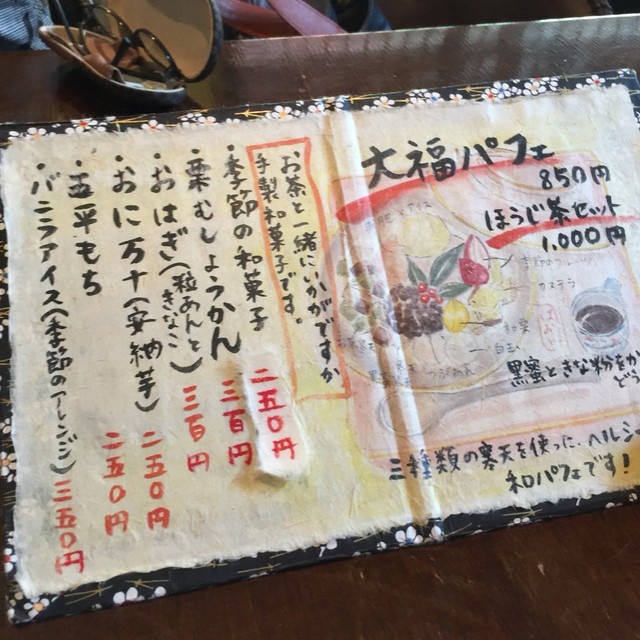 大福パフェ
850円
ほうじ茶セット
1,000円
カステラ
白玉
つぶあん
黒蜜ときな粉をか
どう
二種類の寒天を使った、ヘルシ
和パフェです!
お茶と一緒にいかがですか
手製和菓子です。
・季節の和菓子 二五〇円
・栗むしようかん 三百円
・おはぎ(粒あんときなこ) 三百円
・おに万十(安納芋) 二五〇円
・五平もち 二五〇円
・バニラアイス(季節のアレンジ) 三五〇円